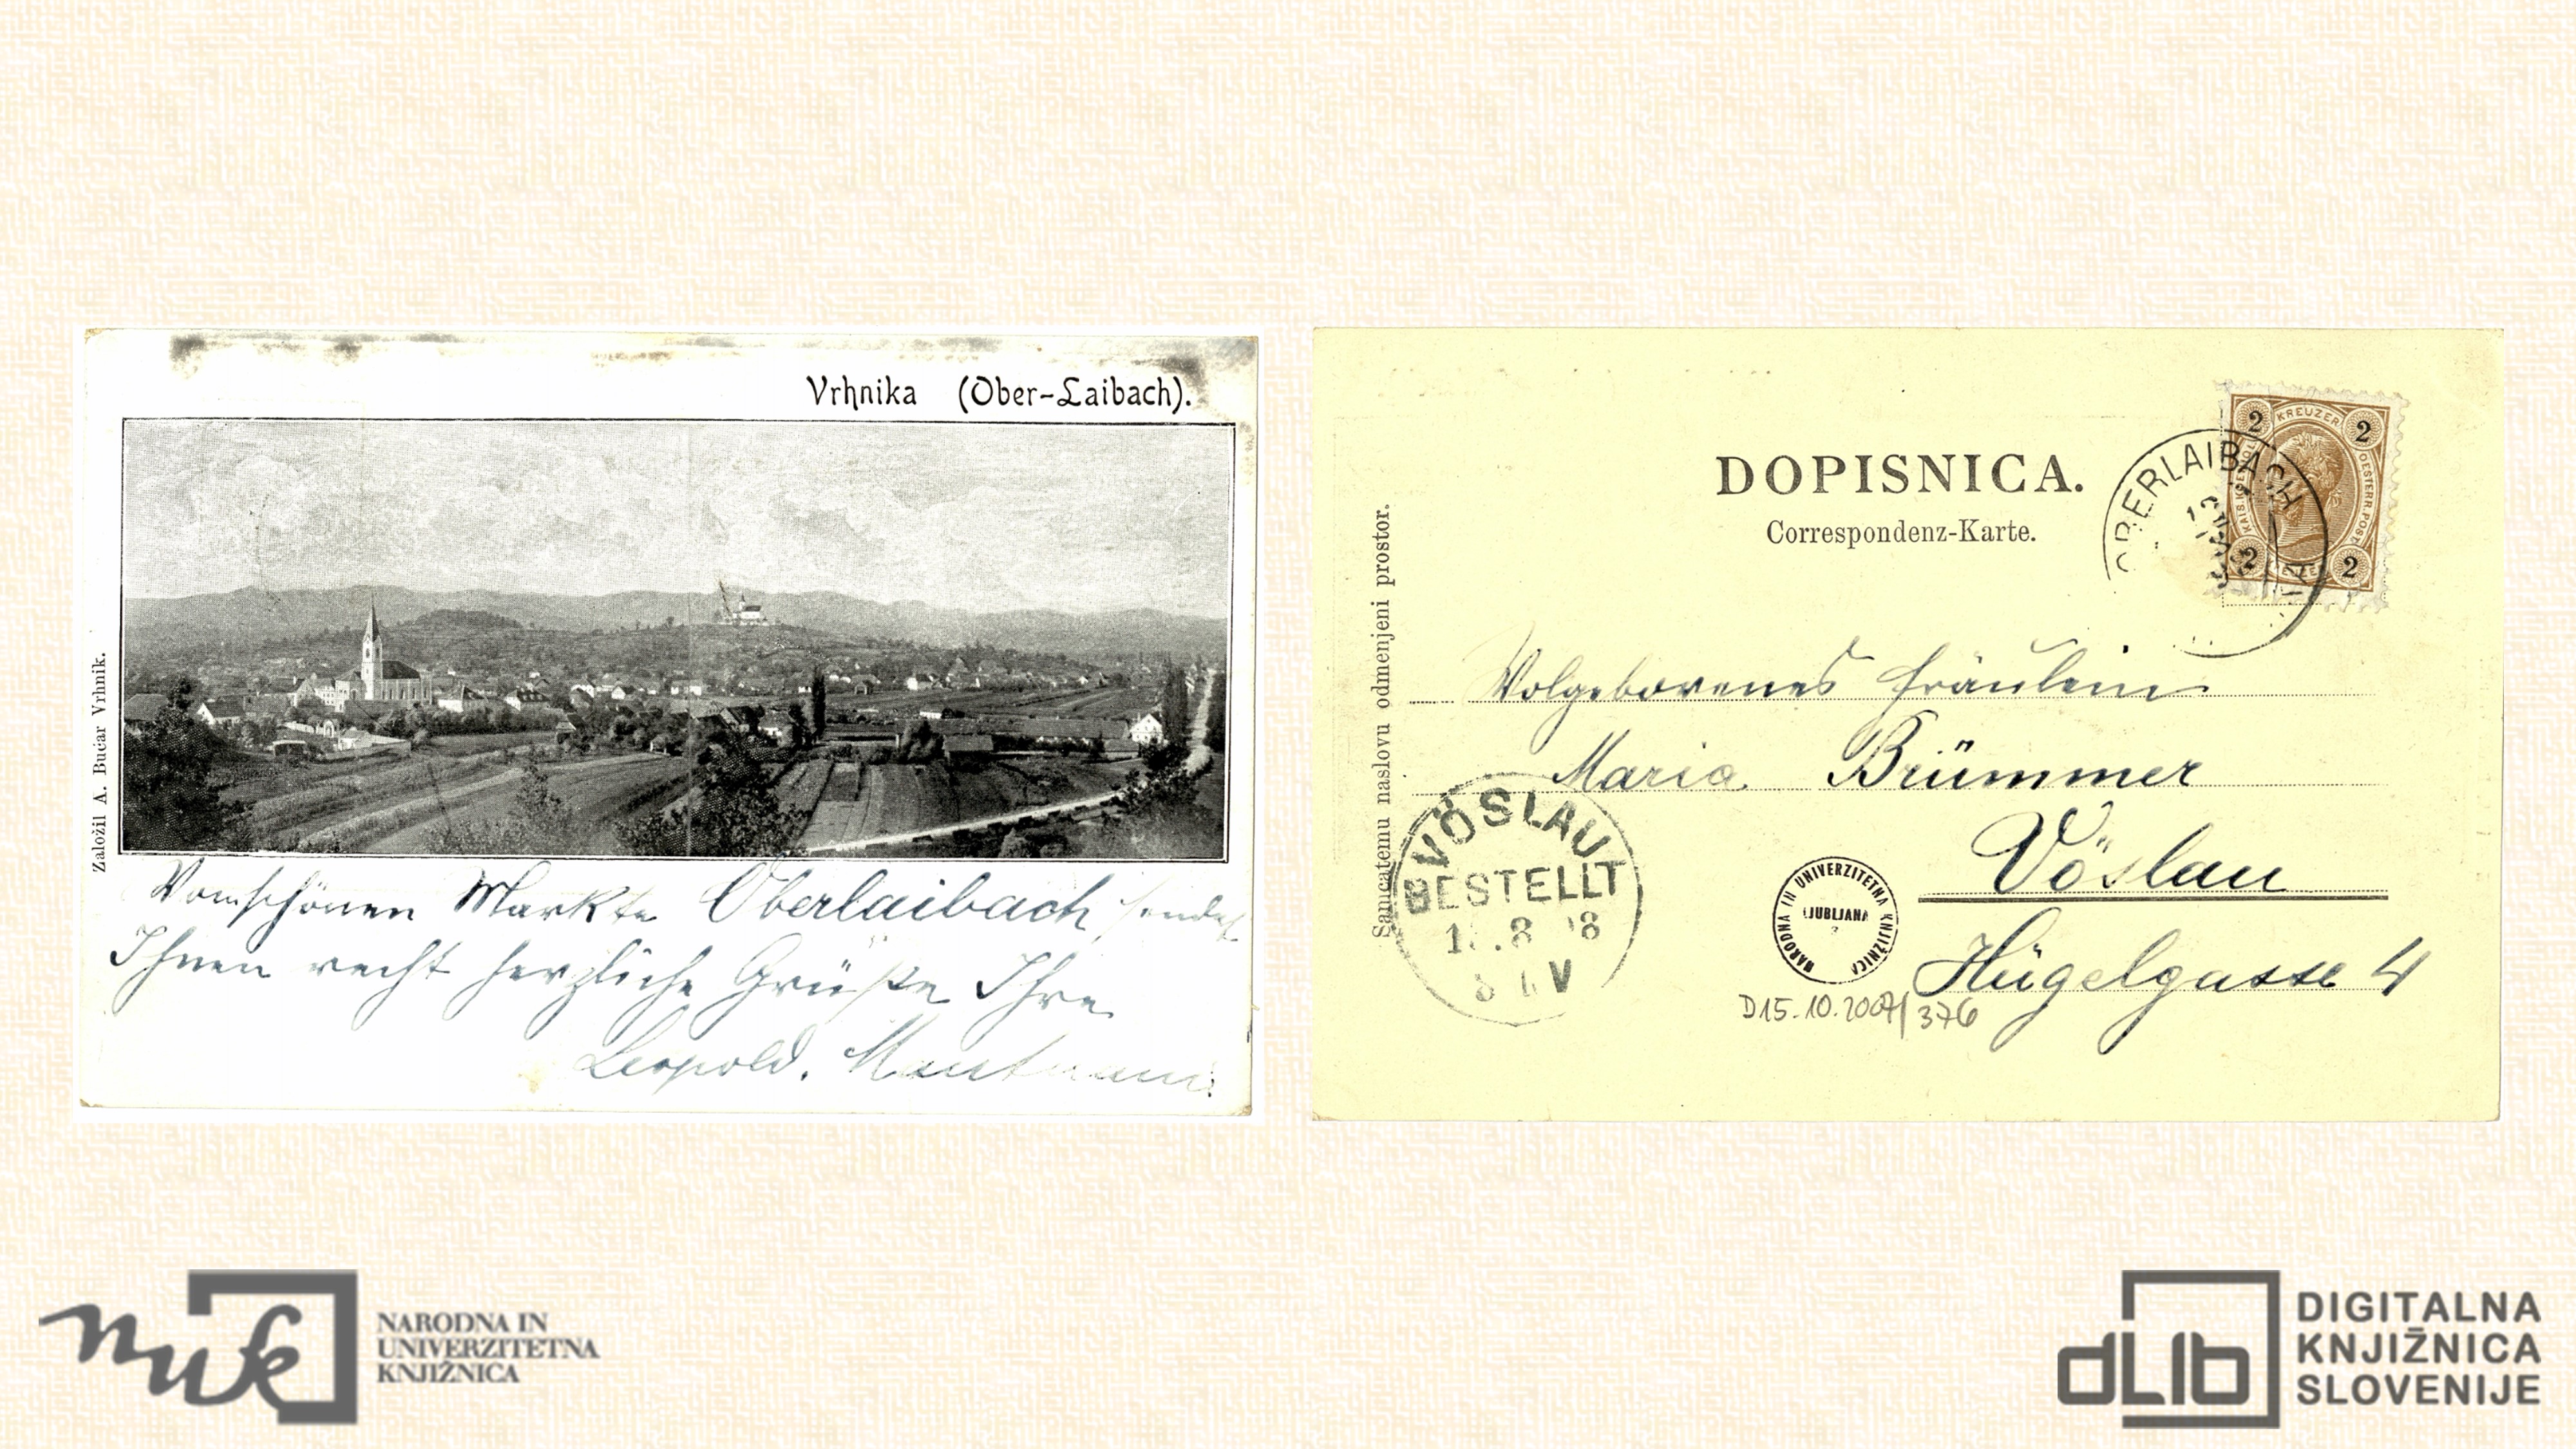 Vrhnika (Ober-Laibach).
Založil A. Bučar Vrhnik.
Vom schönen Markte Oberlaibach sendet
Ihnen recht herzliche Grüße Ihre
Leopold.
DOPISNICA.
Correspondenz-Karte.
Samo catemu naslovu odmenjeni prostor.
2 KREUZER 2
OESTERR. POST
2 2
OBERLAIBACH
Wolgeborenes Fräulein
Maria Brümmer
Vöslau
Hügelgasse 4
VÖSLAU
BESTELLT
NARODNA IN UNIVERZITETNA KNJIŽNICA
LJUBLJANA
D15.10.2007/376
nuk
NARODNA IN
UNIVERZITETNA
KNJIŽNICA
dLib
DIGITALNA
KNJIŽNICA
SLOVENIJE